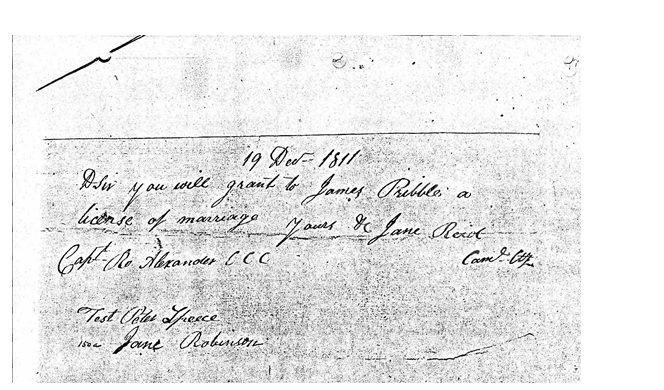 19 Decr 1811
DSir you will grant to James Pribble a
license of marriage yours &c Jane Reid
Capt Ro Alexander CCC Camd Cty
Test Peter
Jane Robinson